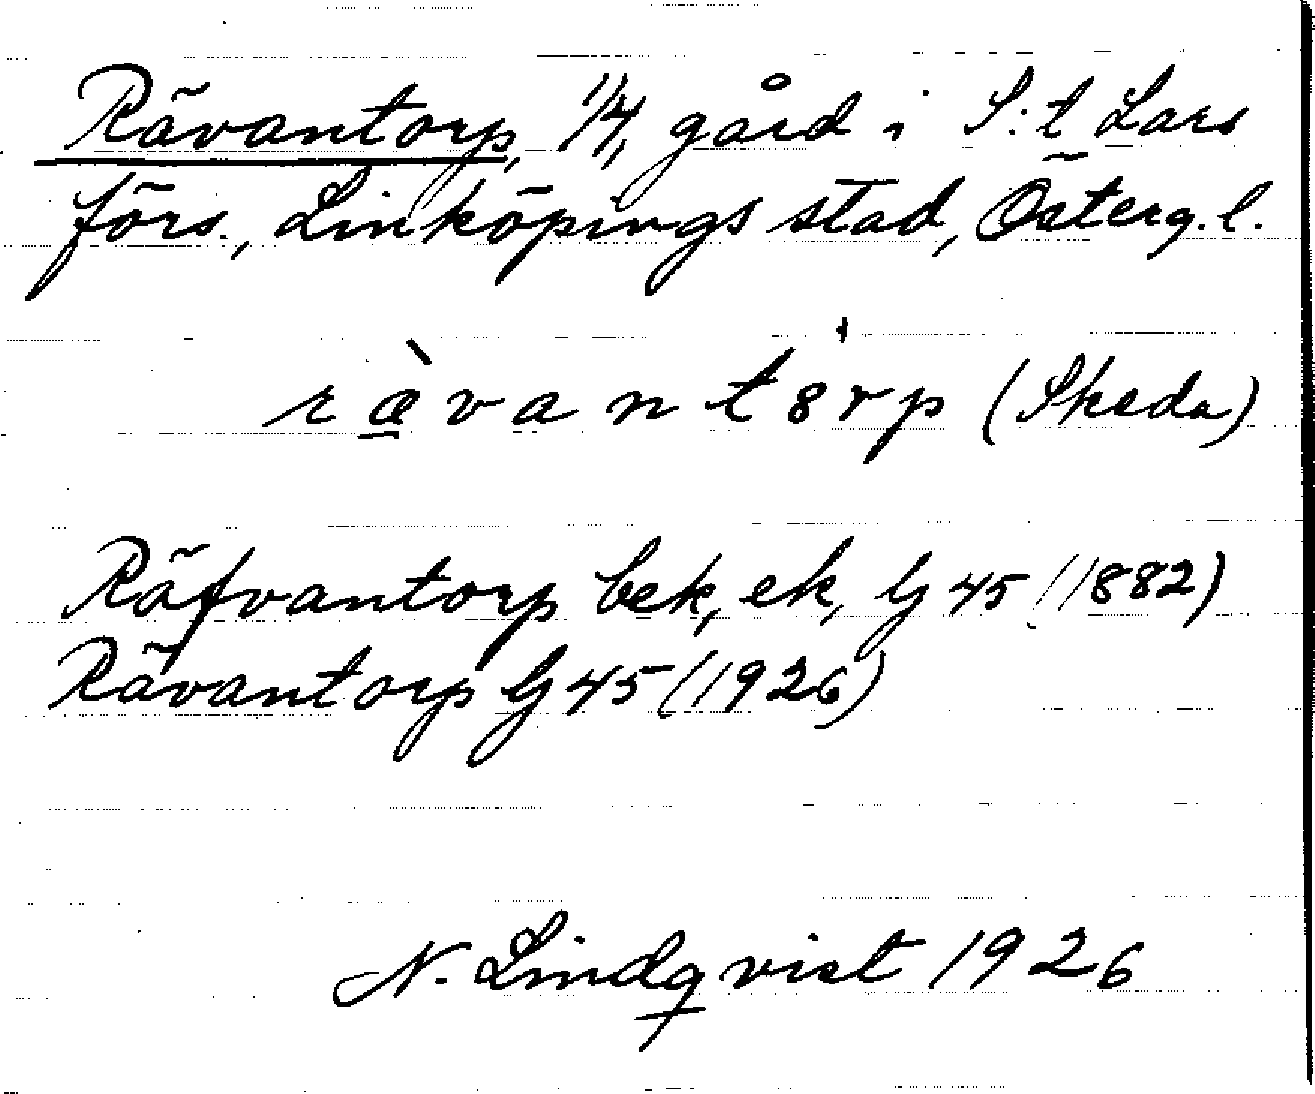 Rävantorp, 1/4, gård i S:t Lars
förs., Linköpings stad, Österg.l.
ræ̀vantȯrp (Skeda)
Räfvantorp bek, ek, G 45 (1882)
Rävantorp G 45 (1926)
N. Lindqvist 1926